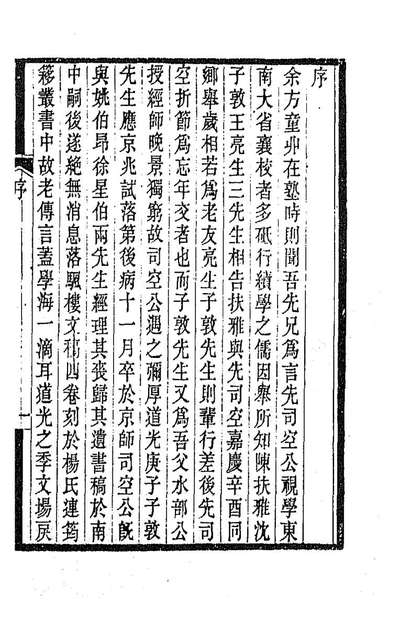 序
余方童丱在塾時則聞吾先兄爲言先司空公視學東
南大省襄校者多砥行績學之儒因舉所知陳扶雅沈
子敦王亮生三先生相告扶雅與先司空嘉慶辛酉同
鄉舉歲相若爲老友亮生子敦先生則輩行差後先司
空折節爲忘年交者也而子敦先生又爲吾父水部公
授經師晚景獨窮故司空公遇之彌厚道光庚子子敦
先生應京兆試落第後病十一月卒於京師司空公旣
與姚伯昂徐星伯兩先生經理其喪歸其遺書稿於南
中嗣後遂絶無消息落颿樓文稿四卷刻於楊氏連筠
簃叢書中故老傳言蓋學海一滴耳道光之季文揚戻
序
一